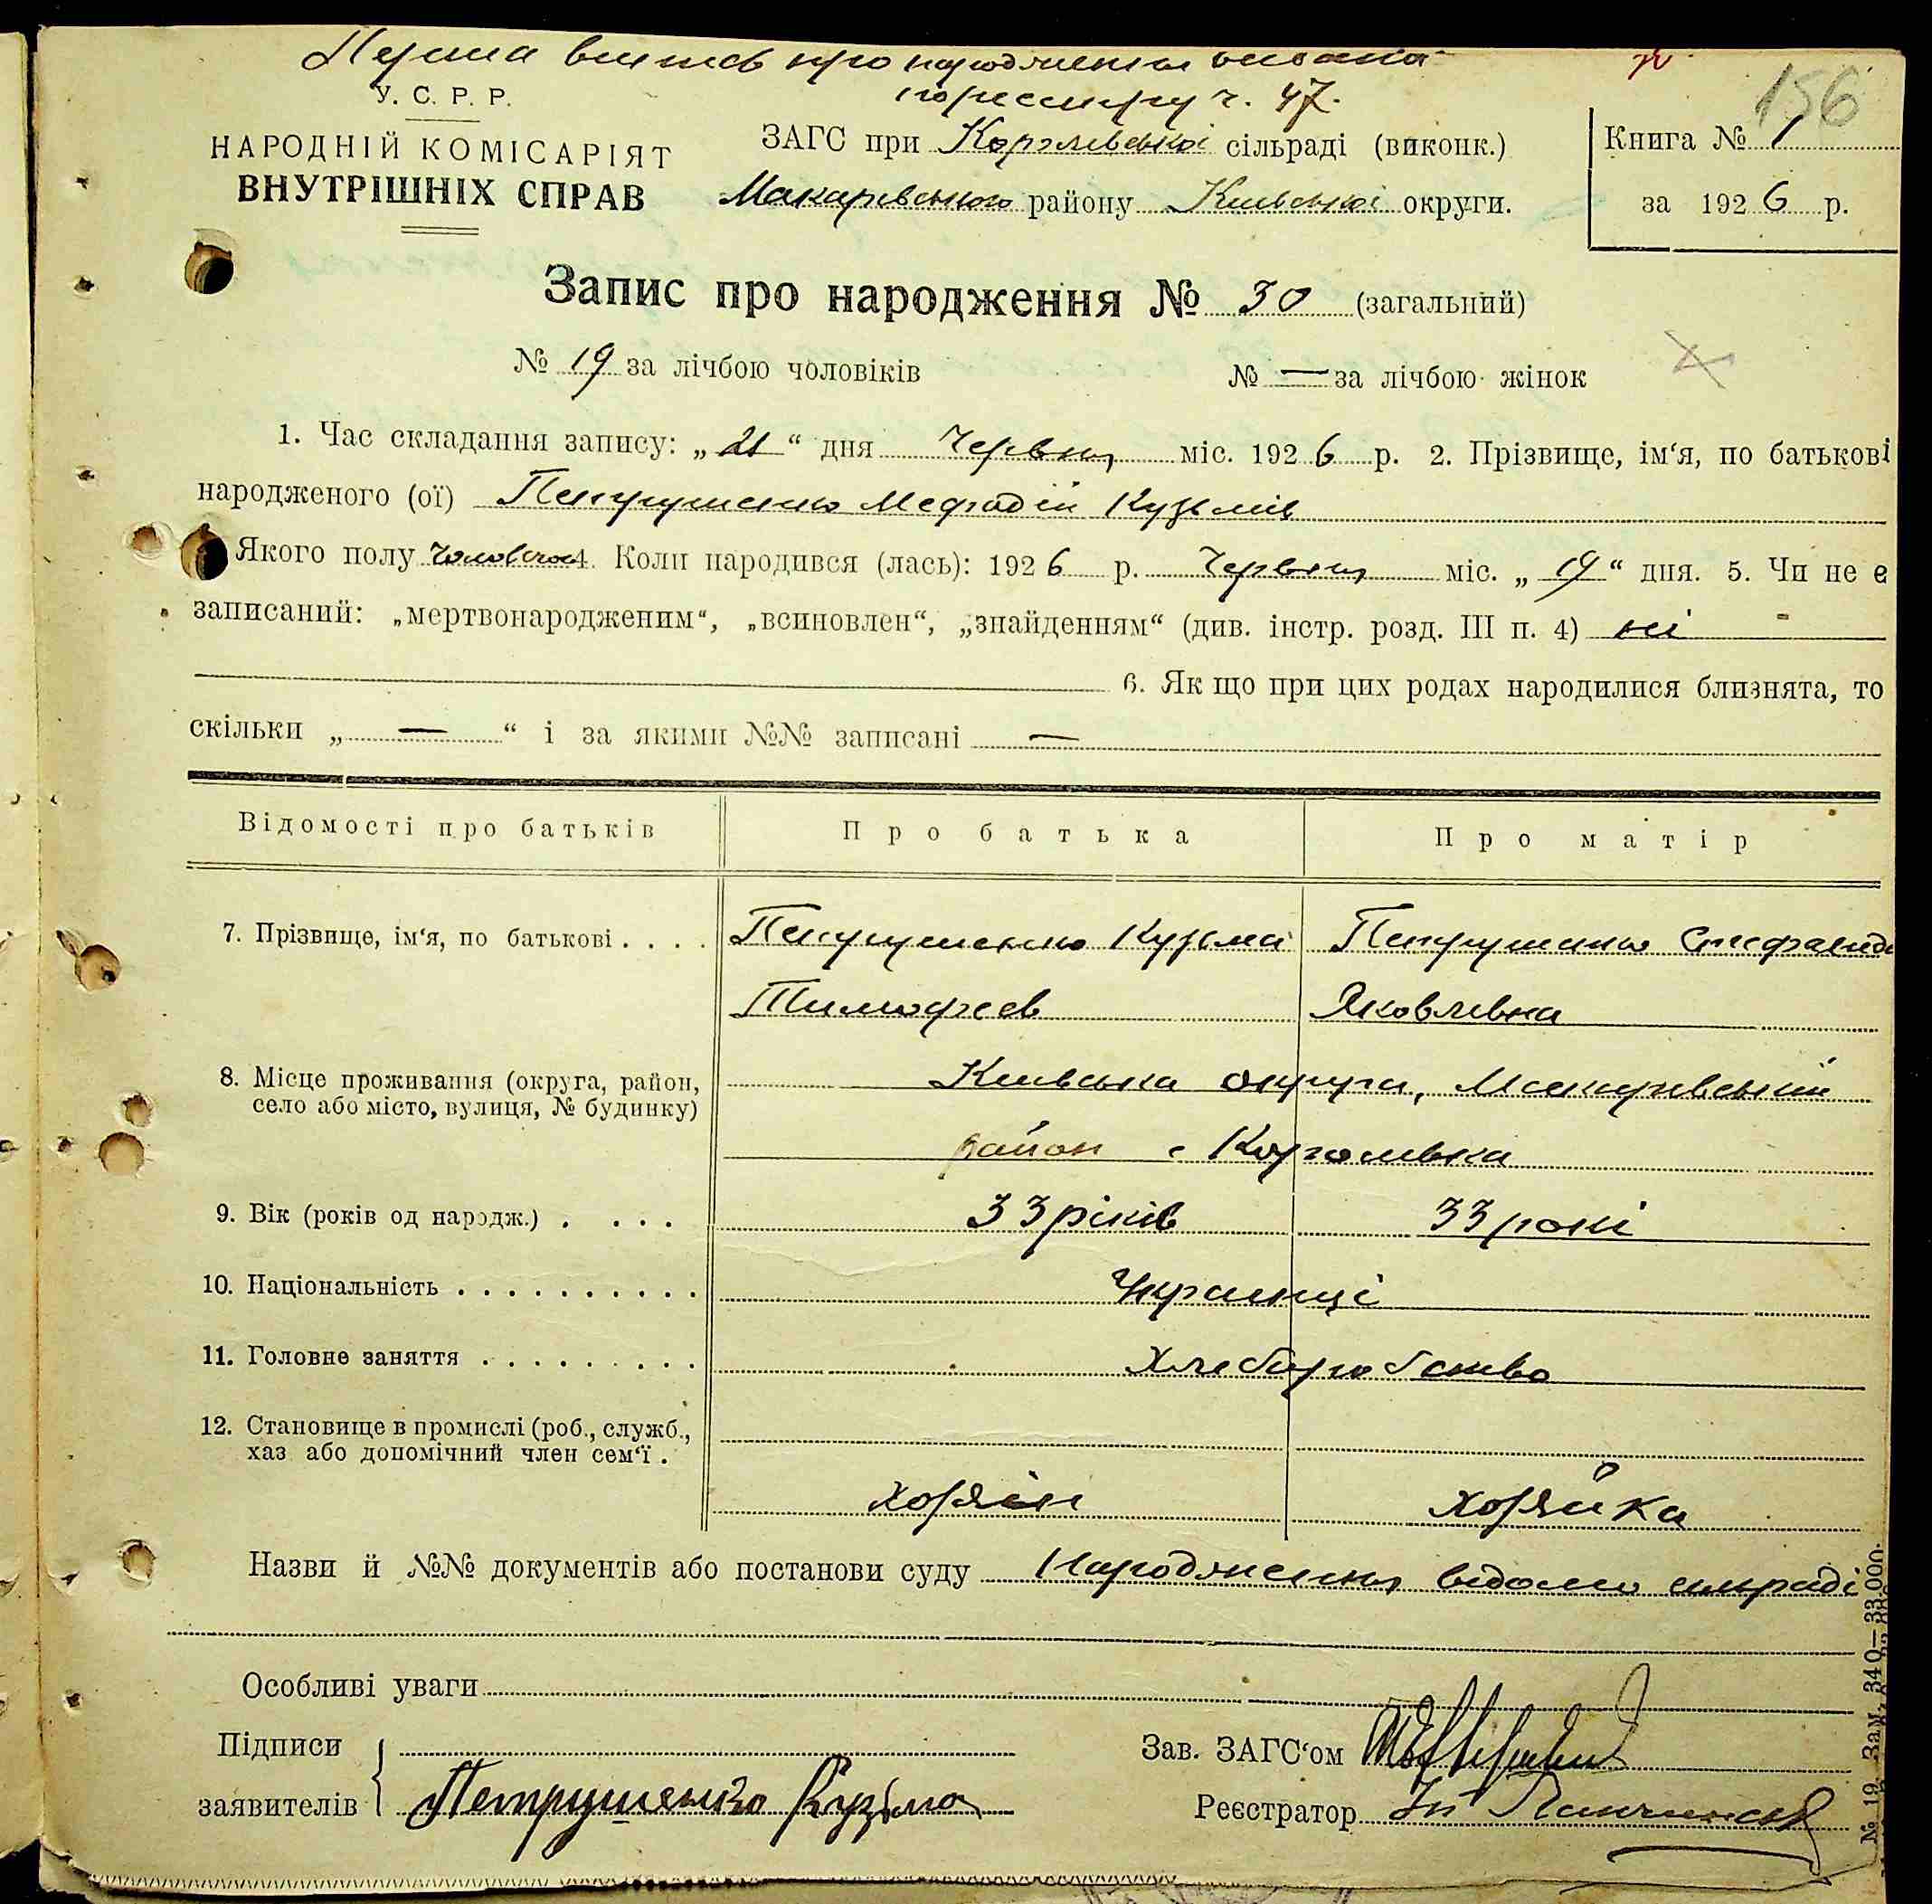 Перша випись про народження видана
по реєстру ч. 47.
156
У. С. Р. Р.
НАРОДНІЙ КОМІСАРІЯТ
ВНУТРІШНІХ СПРАВ
ЗАГС при Королівській сільраді (виконк.)
Макарівського району Київської округи.
Книга № 1
за 1926 р.
Запис про народження № 30 (загальний)
№ 19 за лічбою чоловіків № — за лічбою жінок
1. Час складання запису: „21“ дня Червня міс. 1926 р. 2. Прізвище, ім‘я, по батькові
народженого (ої) Петрушенко Мефодій Кузьмів
Якого полу чоловічої 4. Коли народився (лась): 1926 р. Червня міс. „19“ дня. 5. Чи не є
записаний: „мертвонародженим“, „всиновлен“, „знайденням“ (див. інстр. розд. III п. 4) ні
6. Як що при цих родах народилися близнята, то
скільки „ — “ і за якими №№ записані —
Відомості про батьків Про батька Про матір
7. Прізвище, ім‘я, по батькові . . . . Петрушенко Кузьма Петрушенко Степанида
Тимофеєв Яковлевна
8. Місце проживання (округа, район, Київська округа, Макарівський
село або місто, вулиця, № будинку)
район с Королівка
9. Вік (років од народж.) . . . . 33 років 33 роки
10. Національність . . . . . . . . . . Українці
11. Головне заняття . . . . . . . . . Хлеборобство
12. Становище в промислі (роб., служб.,
хаз або допомічний член сем‘ї .
хозяїн хозяйка
Назви й №№ документів або постанови суду Народження відомо сільраді
Особливі уваги
Підписи
заявителів Петрушенко Кузьма
Зав. ЗАГС‘ом
Реєстратор
№ 19 Зам. 340—33.000.